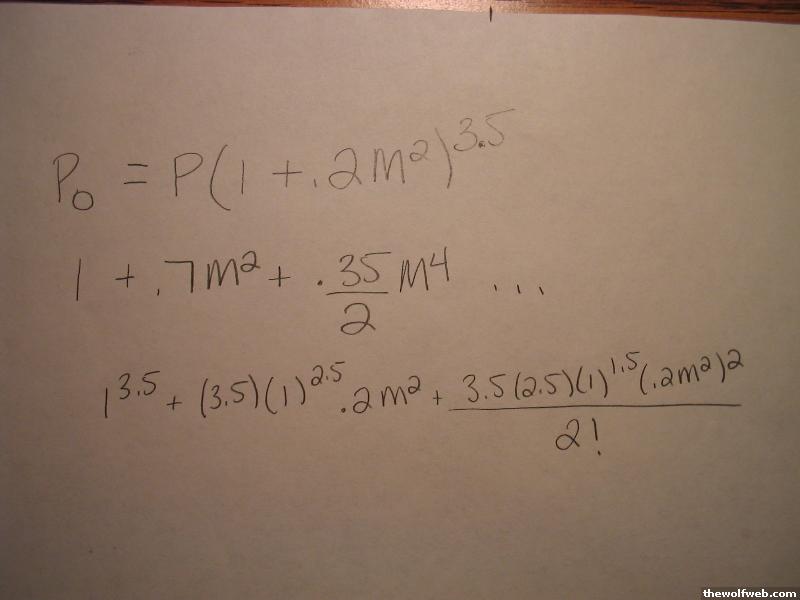 P₀ = P(1 + .2m²)^3.5
1 + .7m² + .35/2 m⁴ ...
1^3.5 + (3.5)(1)^2.5 .2m² + 3.5(2.5)(1)^1.5(.2m²)2/2!
thewolfweb.com